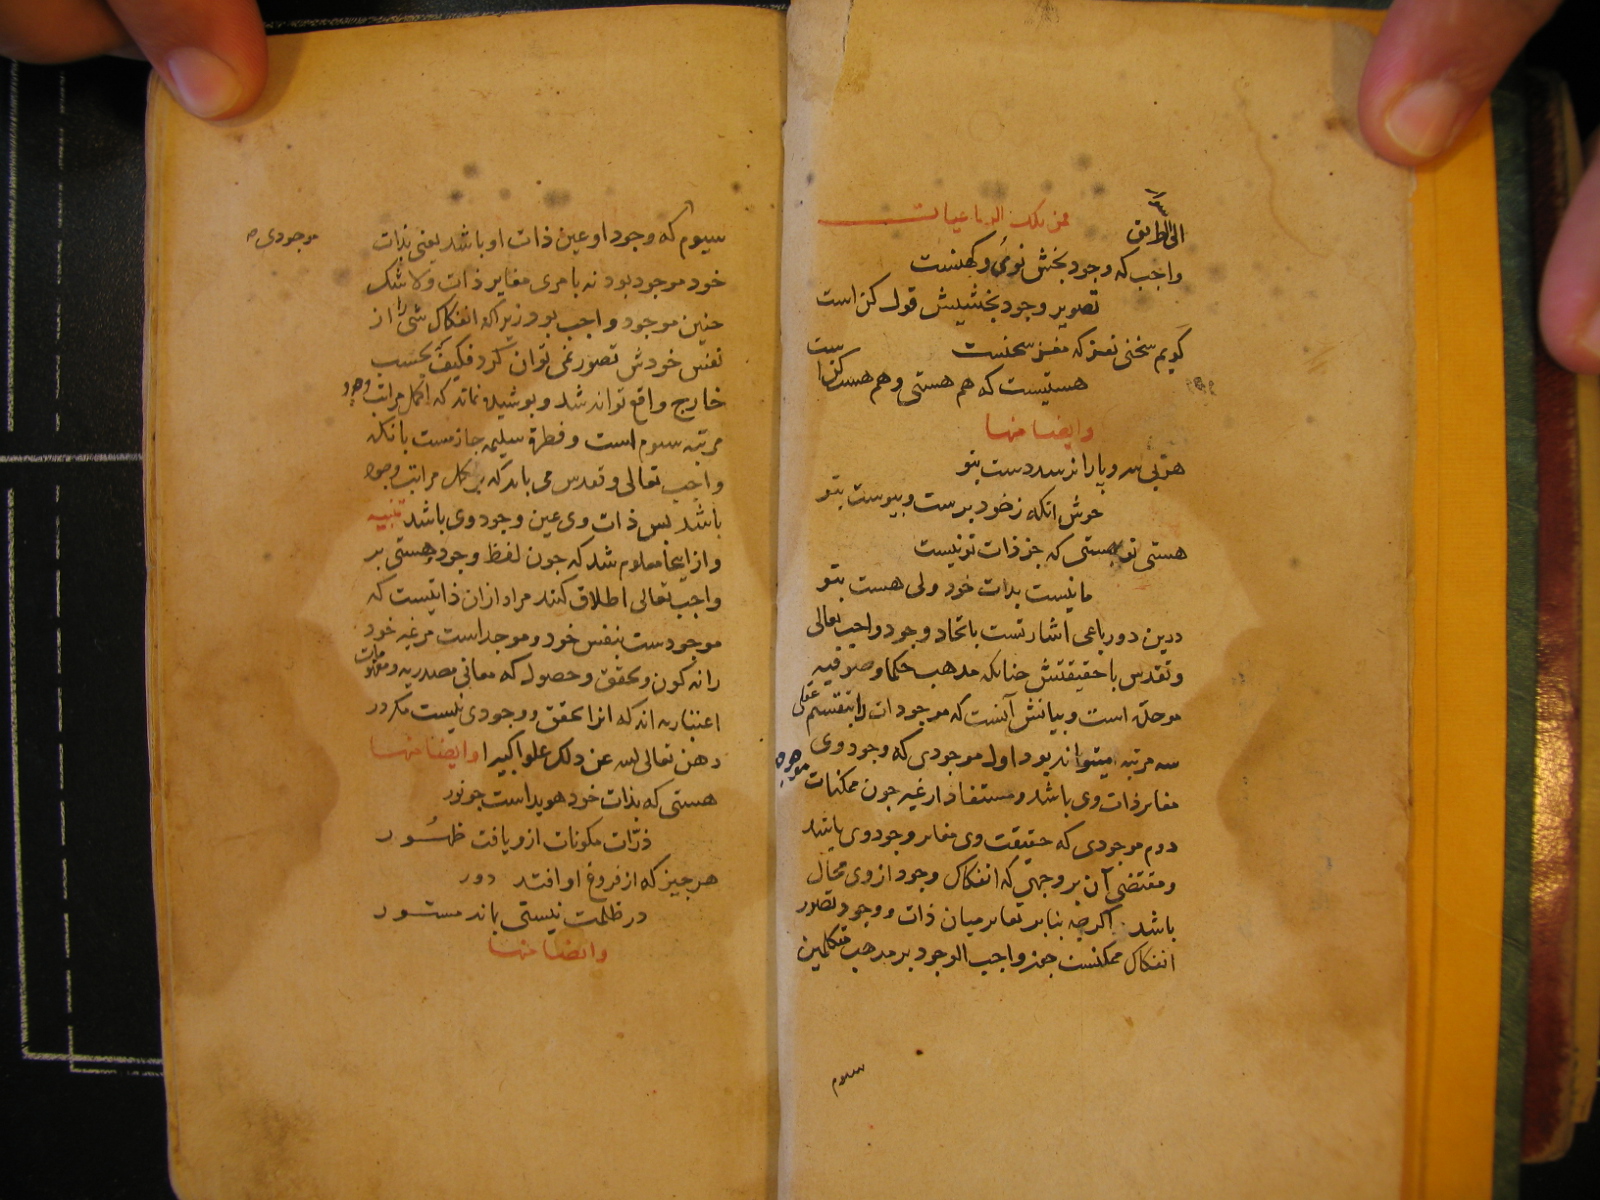 الی الطریق فمن تلک الرباعیات
واجب که وجود بخش نو و کهنست
تصویر وجود بخشیش قول کن است
کویم سخنی نغز که مغز سخنست
هستیست که هم هستی و هم هست کن است
وایضا منها
هر بی سر و پا را نرسد دست بتو
خوش آنکه ز خود برست و پیوست بتو
هستی تو هستی که جز ذات تو نیست
ما نیست بذات خود ولی هست بتو
درین دو رباعی اشارتست باتحاد وجود واجب تعالی
و تقدس با حقیقتش چنانکه مذهب حکما و صوفیه
موحده است و بیانش آنست که موجودات را بتقسیم عقلی
سه مرتبه میتواند بود اول موجودی که وجود وی
مغایر ذات وی باشد و مستفاد از غیر چون ممکنات موجوده
دوم موجودی که حقیقت وی مغایر وجود وی باشد
و مقتضی آن بر وجهی که انفکاک وجود از وی محال
باشد اکرچه بنابر تغایر میان ذات و وجود تصور
انفکاک ممکنست چون واجب الوجود بر مذهب متکلمین
سیوم
سیوم که وجود او عین ذات او باشد یعنی بذات
موجودی
خود موجود بود نه بامری مغایر ذات و لا شک
چنین موجود واجب بود زیرا که انفکاک شی را از
نفس خودش تصور نمی توان کرد فکیف که بحسب
خارج واقع تواند شد و پوشیده نماند که اکمل مراتب وجود
مرتبه سیوم است و فطرة سلیمه جازمست بانکه
واجب تعالی و تقدس می باید که بر اکمل مراتب وجود
باشد پس ذات وی عین وجود وی باشد تنبیه
و از اینجا معلوم شد که چون لفظ وجود و هستی بر
واجب تعالی اطلاق کنند مراد ازان ذاتیست که
موجودست بنفس خود و موجد است مر غیر خود
را نه کون و تحقق و حصول که معانی مصدریه و مفهومات
اعتباریه اند که انرا تحقق و وجودی نیست مکر در
ذهن تعالی الله عن ذلک علوا کبیرا وایضا منها
هستی که بذات خود هویداست چو نور
ذرّات مکونات ازو یافت ظهُور
هر چیز که از فروغ او افتد دور
در ظلمت نیستی بماند مستور
وایضا منها